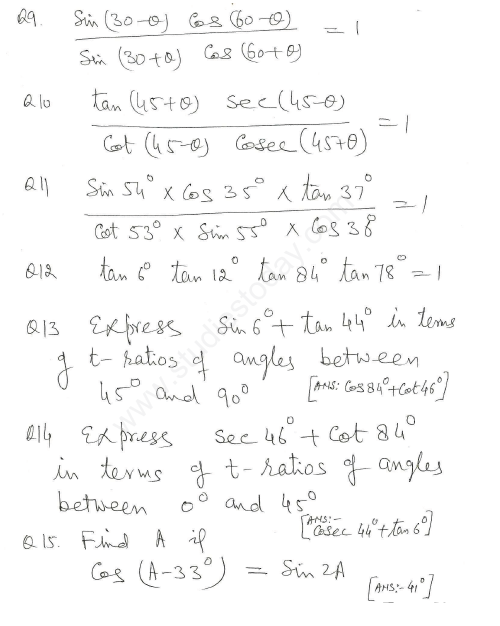 Q9. Sin (30-θ) Cos (60-θ) / Sin (30+θ) Cos (60+θ) = 1
Q10 tan (45+θ) sec (45-θ) / Cot (45-θ) Cosec (45+θ) = 1
Q11 Sin 54° × Cos 35° × tan 37° / Cot 53° × Sin 55° × Cos 36° = 1
Q12 tan 6° tan 12° tan 84° tan 78° = 1
Q13 Express Sin 6° + tan 44° in terms
of t-ratios of angles between
45° and 90° [ANS: Cos 84° + Cot 46°]
Q14 Express sec 46° + Cot 84°
in terms of t-ratios of angles
between 0° and 45°
[ANS:- Cosec 44° + tan 6°]
Q15. Find A if
Cos (A-33°) = Sin 2A
[ANS:- 41°]
www.studiestoday.com